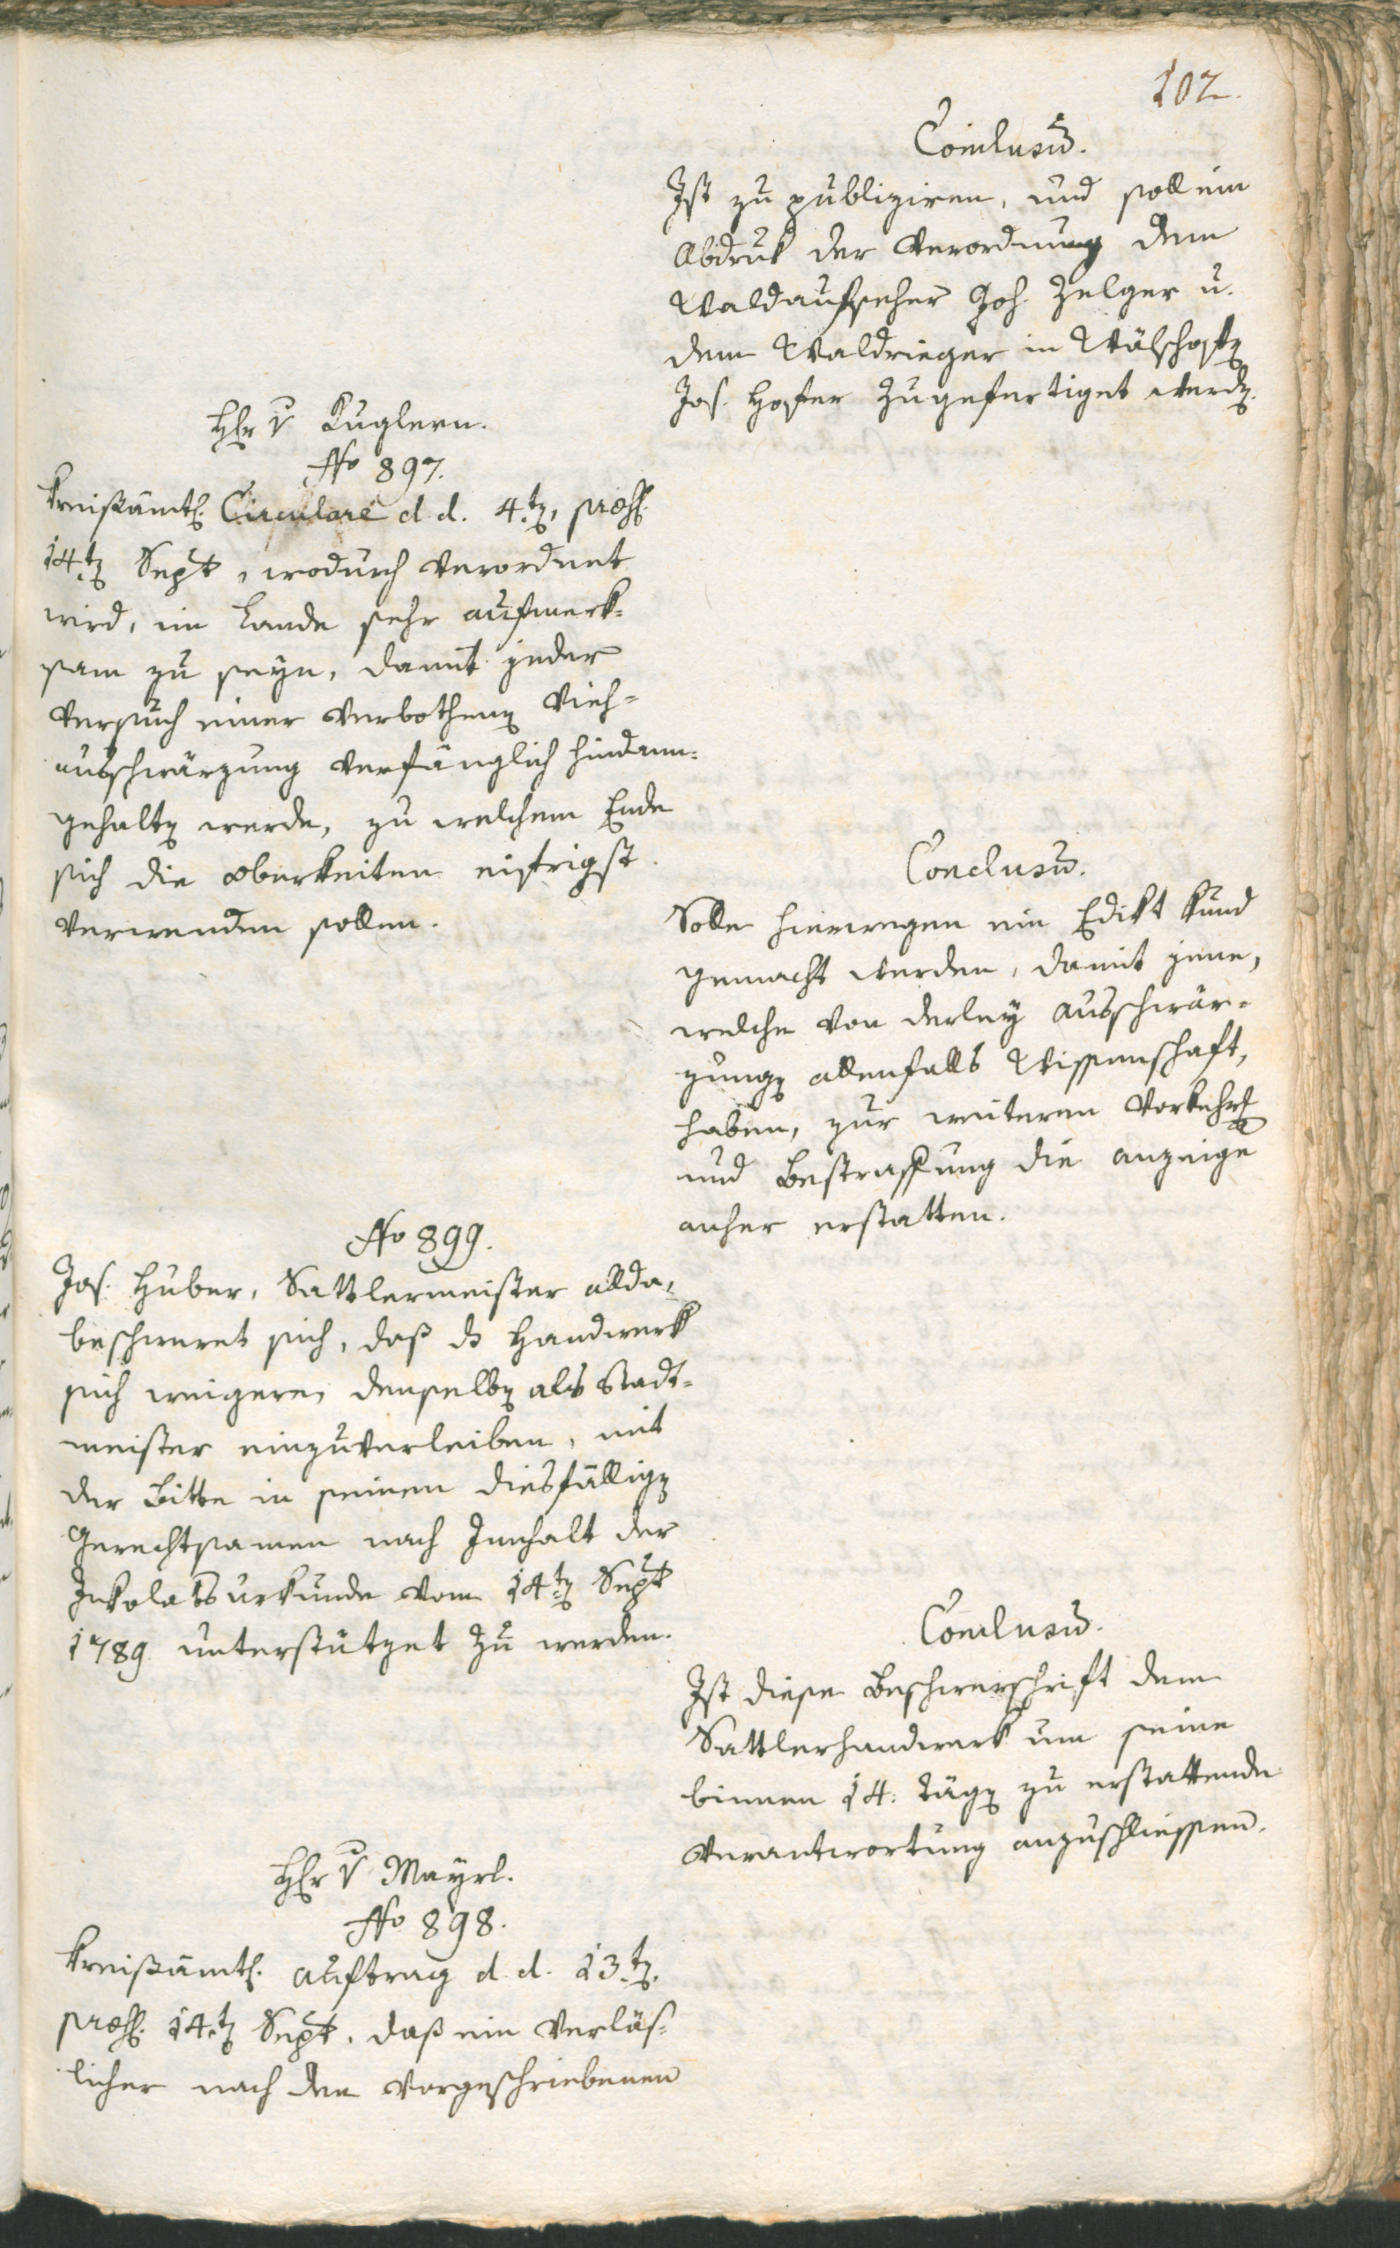 102.
Conclusũ.
Ist zu publiziren, und soll ein
Abdruk der Verordnung dem
Waldaufseher Joh. Zelger u.
dem Waldrieger in Wälschofen
Jos. Hofer zugefertiget werden.
Hhr v Kuglern.
No 897.
Kreisämtl. Circulare d. d. 4ten, præs.
14ten Sept, wodurch verordnet
wird, im Lande sehr aufmerk-
sam zu seyn, damit jeder
Versuch einer verbothenen Vieh-
ausschwärzung verfänglich hindann-
gehalten werde, zu welchem Ende
sich die Oberkeiten eifrigst
verwenden sollen.
Conclusũ.
Solle hierwegen ein Edikt kund
gemacht werden, damit jene,
welche von derley Ausschwär-
zungen allenfalls Wissenschaft,
haben, zur weiteren Vorkehr
und Bestraffung die Anzeige
anher erstatten.
No 899.
Jos. Huber, Sattlermeister allda,
beschweret sich, daß ds Handwerk
sich weigere, denselben als Stadt-
meister einzuverleiben, mit
der Bitte in seinen diesfälligen
Gerechtsamen nach Innhalt der
Inkolatsurkunde vom 14ten Sept
1789 unterstützet zu werden.
Conclusũ.
Ist diese Beschwerschrift dem
Sattlerhandwerk um seine
binnen 14. Tägen zu erstattende
Verantwortung anzuschliessen.
Hhr v Mayrl.
No 898.
Kreisämtl. Auftrag d. d. 13ten.
præs. 14ten Sept, daß ein verläs-
licher nach den vorgeschriebenen